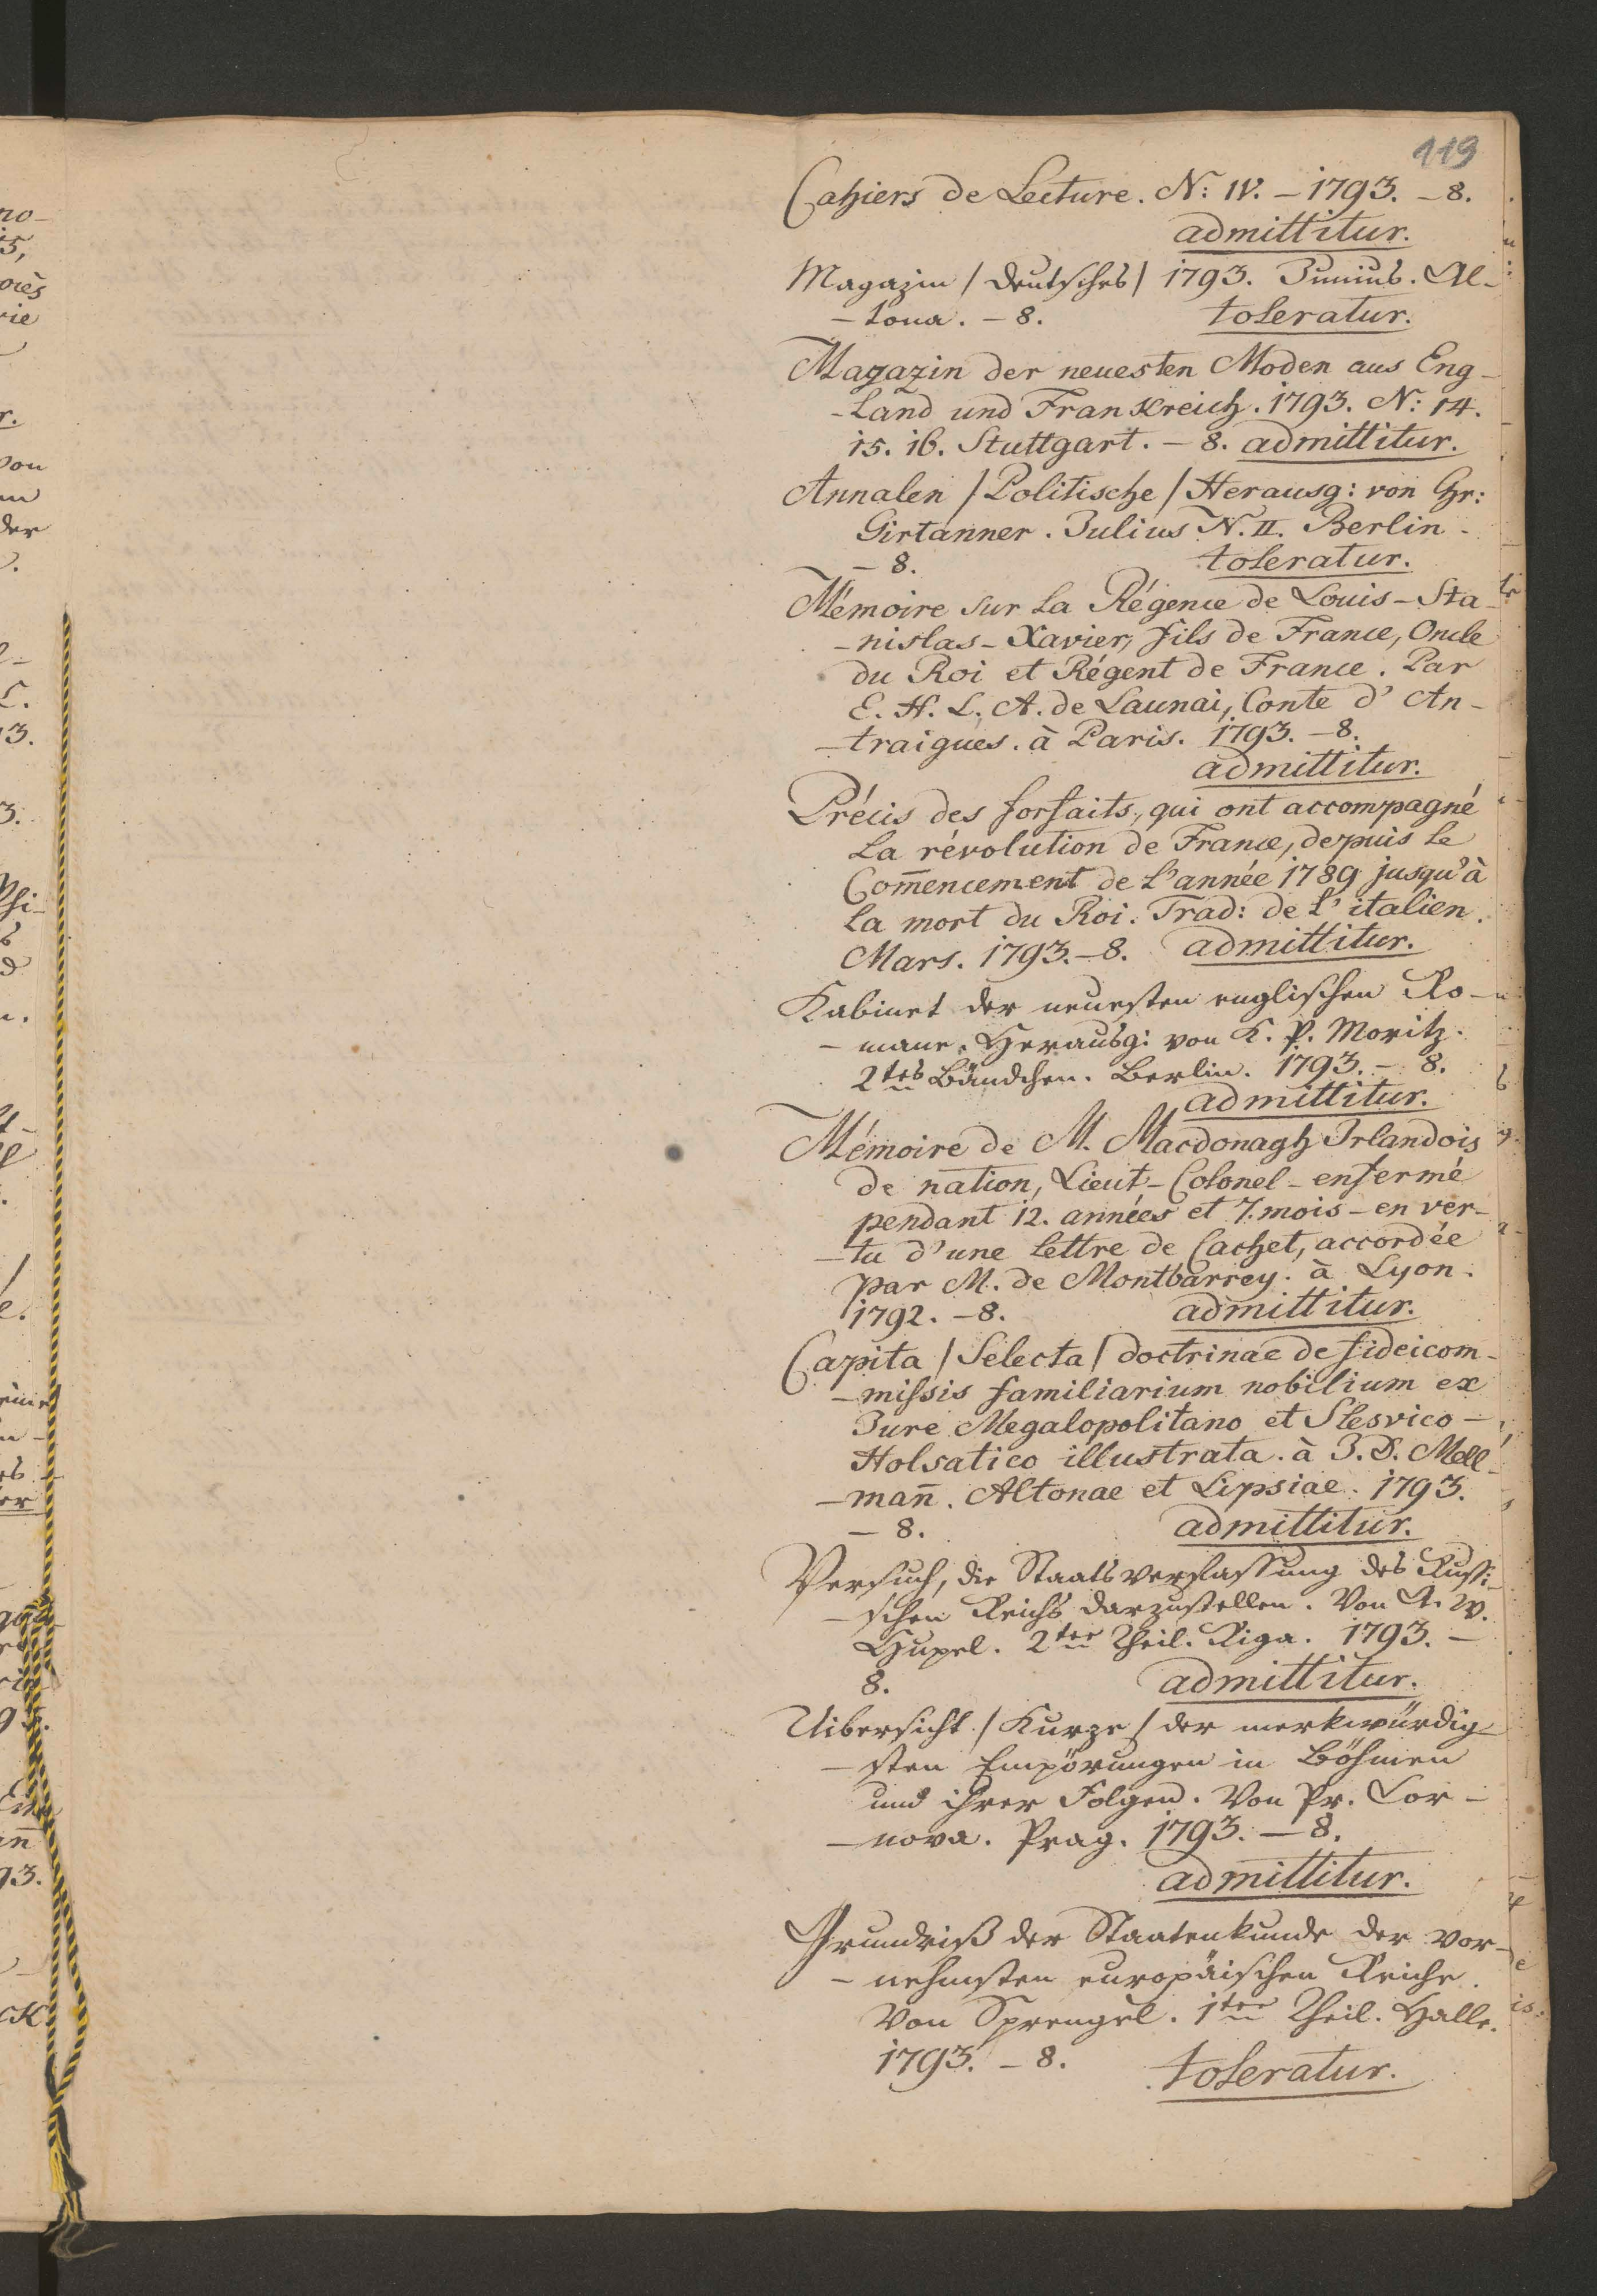 119
Cahiers de Lecture. N: IV. – 1793. – 8.
admittitur.
Magazin / deutsches / 1793. Junius. Al-
– tona. – 8. toleratur.
Magazin der neuesten Moden aus Eng-
– land und Frankreich. 1793. N: 14.
15. 16. Stuttgart. – 8. admittitur.
Annalen / Politische / Herausg: von Chr:
Girtanner. Julius N. II. Berlin.
– 8. toleratur.
Mémoire sur la Régence de Louis-Sta-
– nislas-Xavier, fils de France, Oncle
du Roi et Régent de France. Par
E. H. L. A. de Launai, Conte d'An-
– traigues. à Paris. 1793. – 8.
admittitur.
Précis des forfaits, qui ont accompagné
la révolution de France, depuis le
Com̄encement de l'année 1789 jusqu'à
la mort du Roi. Trad: de l'italien.
Mars. 1793. – 8. admittitur.
Kabinet der neuesten englischen Ro-
– mane. Herausg: von K. P. Moritz.
2tes Bändchen. Berlin. 1793. – 8.
admittitur.
Mémoire de M. Macdonagh Irlandois
de nation, Lieut-Colonel – enfermé
pendant 12. années et 7. mois – en ver-
– tu d'une lettre de Cachet, accordée
par M. de Montbarrey. à Lyon.
1792. – 8. admittitur.
Capita / Selecta / doctrinae de fideicom-
– missis familiarium nobilium ex
Jure Megalopolitano et Slesvico –
Holsatico illustrata. à J. D. Mell-
– man̄. Altonae et Lipsiae. 1793.
– 8. admittitur.
Versuch, die Staatsverfassung des Russi-
– schen Reichs darzustellen. Von A. W.
Hupel. 2ter Theil. Riga. 1793. –
8. admittitur.
Uibersicht / Kurze / der merkwürdig-
– sten Empörungen in Böhmen
und ihrer Folgen. Von Pr. Cor-
– nova. Prag. 1793. – 8.
admittitur.
Grundriß der Staatenkunde der vor-
– nehmsten europäischen Reiche.
Von Sprengel. 1ter Theil. Halle.
1793. – 8. toleratur.